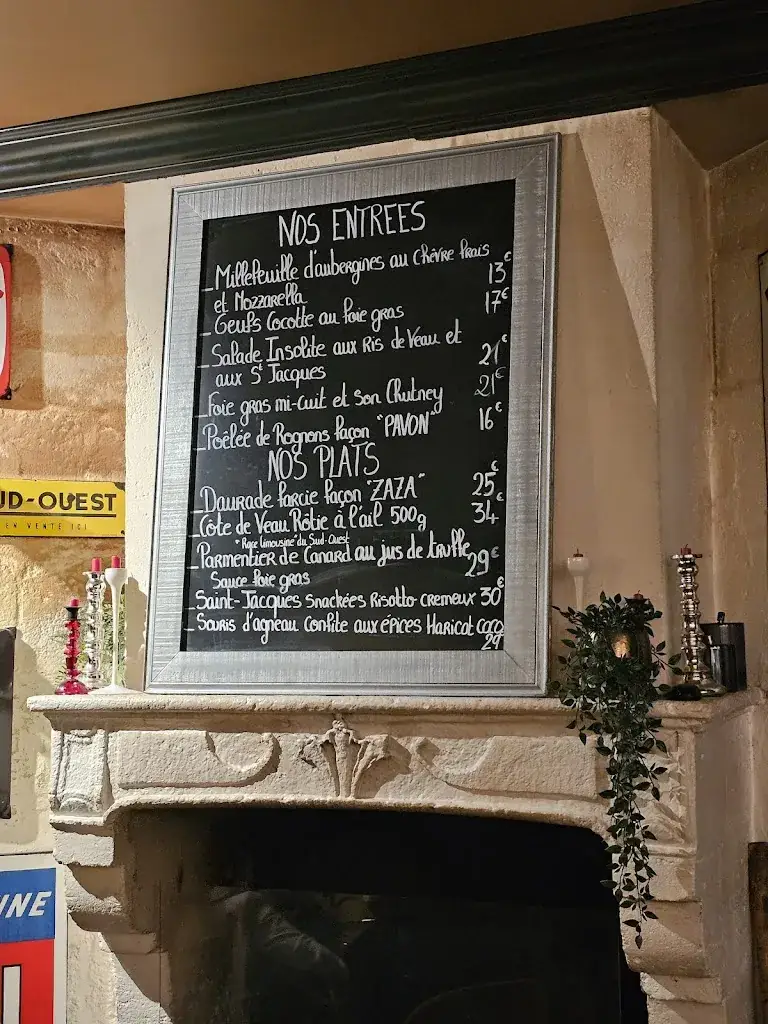 NOS ENTREES
_Millefeuille d'aubergines au chèvre frais
et Mozzarella 13€
_Oeufs Cocotte au foie gras 17€
_Salade Insolite aux Ris de Veau et
aux St Jacques 21€
_Foie gras mi-cuit et son Chutney 21€
_Poêlée de Rognons façon "PAVON" 16€
NOS PLATS
_Daurade farcie façon "ZAZA" 25€
_Côte de Veau Rôtie à l'ail 500g 34€
"Race limousine" du Sud-Ouest
_Parmentier de Canard au jus de truffe 29€
Sauce foie gras
_Saint-Jacques snackées Risotto cremeux 30€
_Souris d'agneau confite aux épices Haricot coco
29
UD-OUEST
EN VENTE ICI
INE